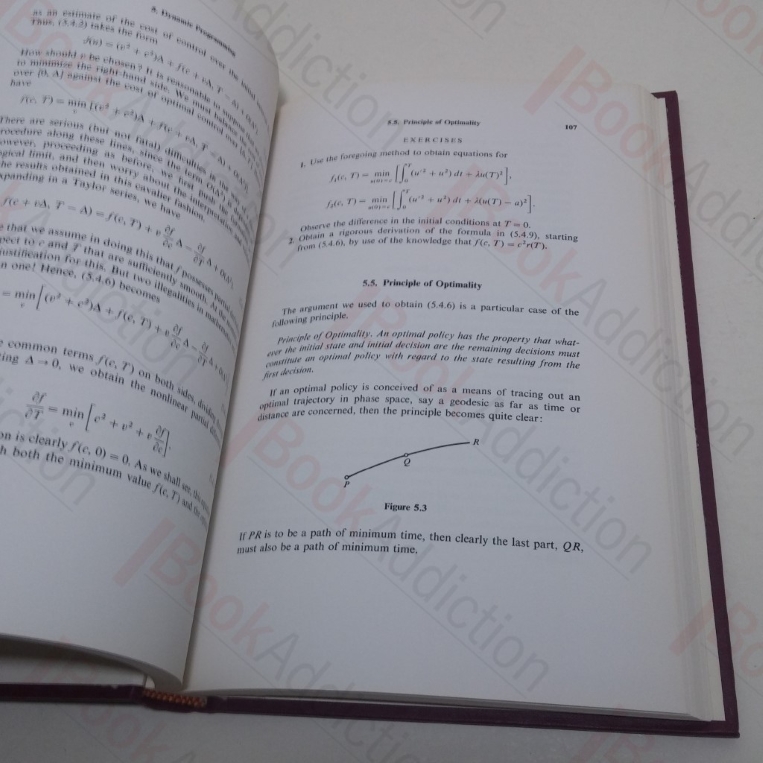 5. Dynamic Programming
as an estimate of the cost of control over the initial
Thus, (5.4.2) takes the form
How should v be chosen? It is reasonable to suppose
to minimize the right-hand side. We must balance the
over [0, Δ] against the cost of optimal control over
have
There are serious (but not fatal) difficulties
procedure along these lines, since the term O(Δ²)
However, proceeding as before, we first
logical limit, and then worry about the
the results obtained in this cavalier fashion.
expanding in a Taylor series, we have
f(c + vΔ, T − Δ) = f(c, T) + v ∂f/∂c Δ − ∂f/∂T Δ + O(Δ²).
e that we assume in doing this that f possesses
pect to c and T that are sufficiently smooth.
justification for this. But two illegalities
n one! Hence, (5.4.6) becomes
= min_v [(c² + v²)Δ + f(c, T) + v ∂f/∂c Δ − ∂f/∂T Δ
e common terms f(c, T) on both sides, dividing
ing Δ → 0, we obtain the nonlinear partial
∂f/∂T = min_v [c² + v² + v ∂f/∂c].
on is clearly f(c, 0) = 0. As we shall see,
h both the minimum value f(c, T) and the
5.5. Principle of Optimality 107
EXERCISES
1. Use the foregoing method to obtain equations for
f₁(c, T) = min_{u(0)=c} [∫₀ᵀ (u'² + u²) dt + λu(T)²],
f₂(c, T) = min_{u(0)=c} [∫₀ᵀ (u'² + u²) dt + λ(u(T) − a)²].
Observe the difference in the initial conditions at T = 0.
2. Obtain a rigorous derivation of the formula in (5.4.9), starting
from (5.4.6), by use of the knowledge that f(c, T) = c²r(T).
5.5. Principle of Optimality
The argument we used to obtain (5.4.6) is a particular case of the
following principle.
Principle of Optimality. An optimal policy has the property that what-
ever the initial state and initial decision are the remaining decisions must
constitute an optimal policy with regard to the state resulting from the
first decision.
If an optimal policy is conceived of as a means of tracing out an
optimal trajectory in phase space, say a geodesic as far as time or
distance are concerned, then the principle becomes quite clear:
R
Q
P
Figure 5.3
If PR is to be a path of minimum time, then clearly the last part, QR,
must also be a path of minimum time.
BookAddiction
BookAddiction
BookAddiction
BookAddiction